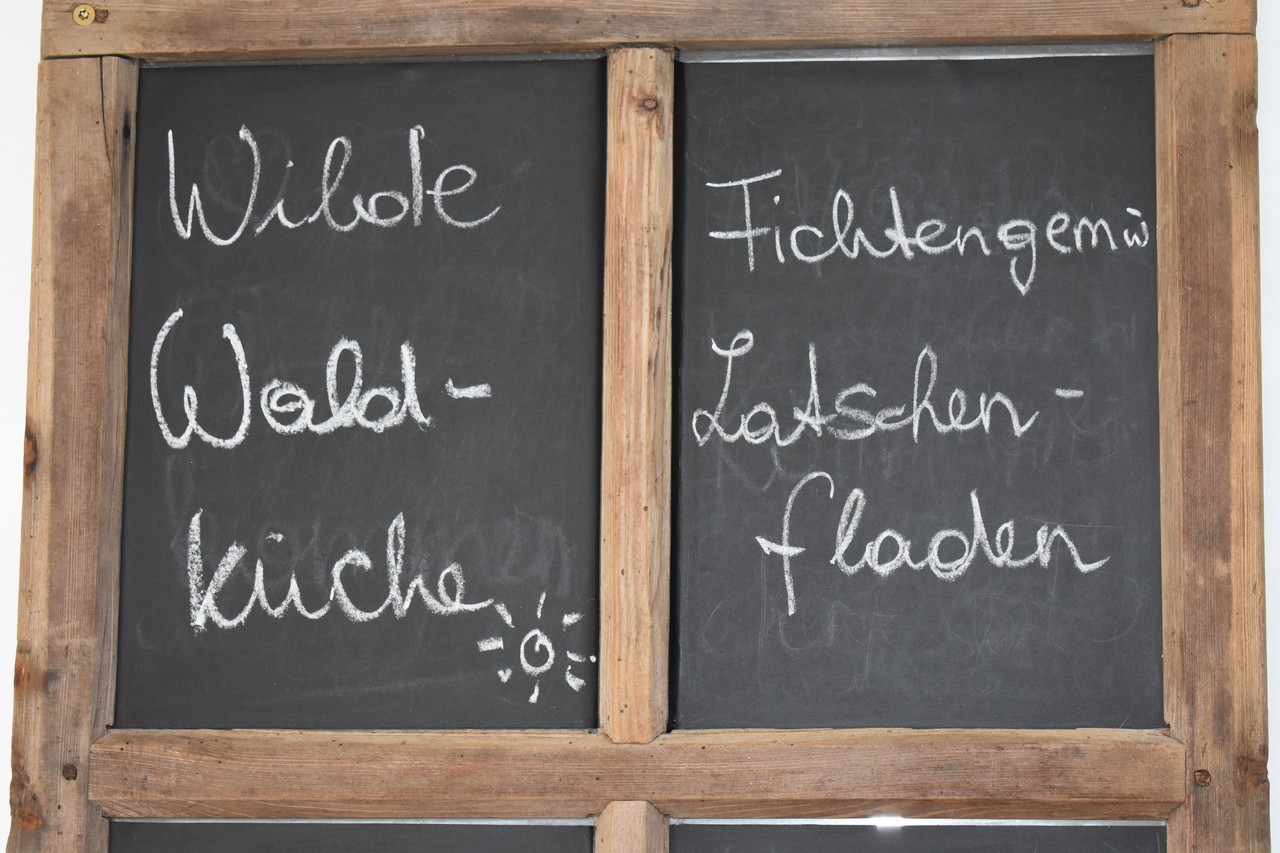 Wilde
Wald-
küche
Fichtengemü
Latschen-
fladen